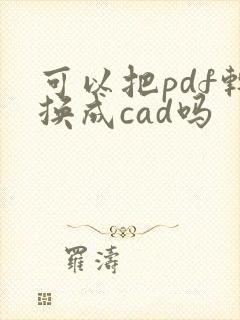 可以把pdf轉
换成cad吗
羅濤